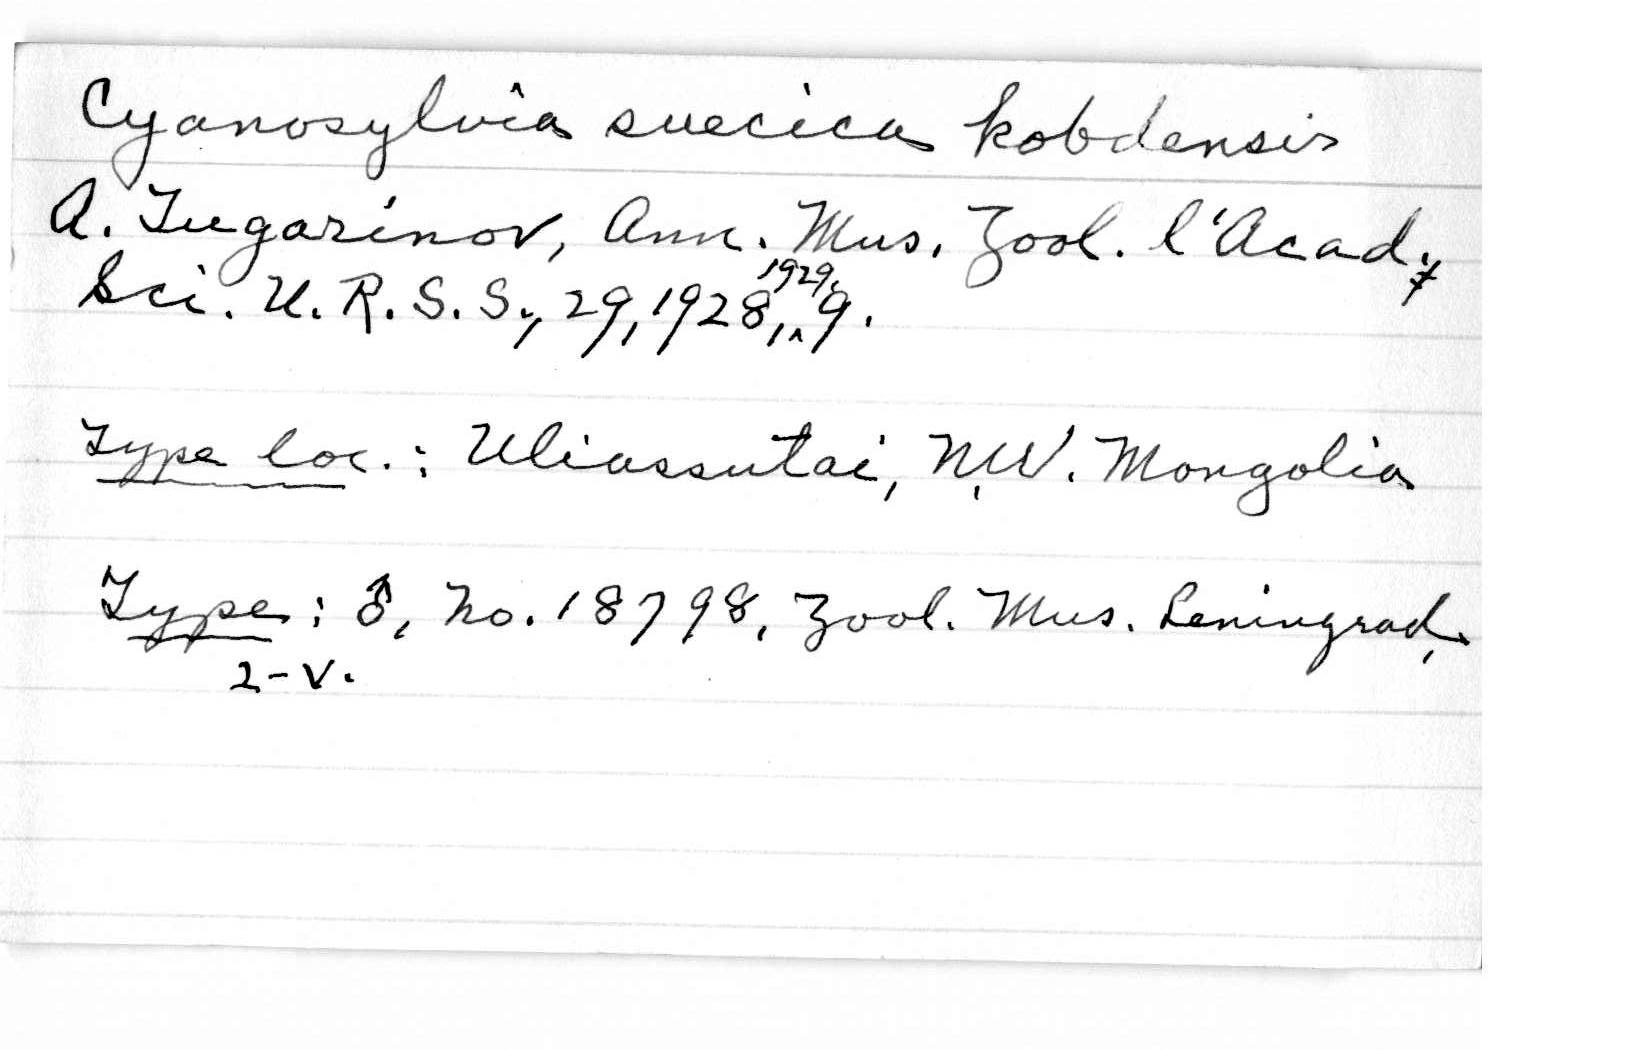 Cyanosylvia suecica kobdensis
A. Tugarinov, Ann. Mus. Zool. l'Acad.
Sci. U.R.S.S., 29, 1928, 1929, 9.
Type loc.: Uliassutai, N.W. Mongolia
Type: ♂, No. 18798, Zool. Mus. Leningrad,
2-V.